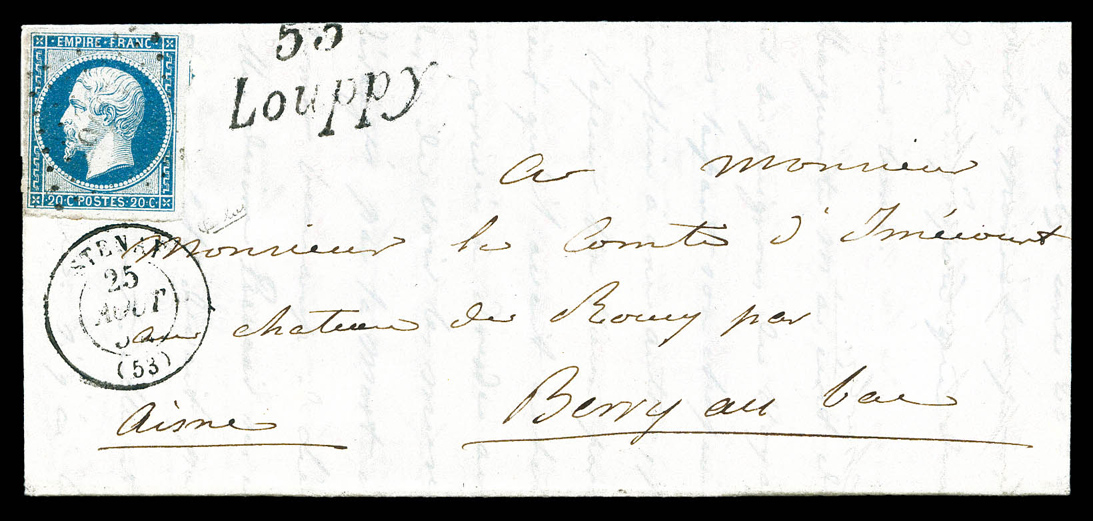 EMPIRE FRANC
20·C POSTES·20·C
53
Louppy
A Monsieur
Monsieur le Comte d'Imécourt
STENAY
25
AOUT
(53)
au chateau de Roucy par
Berry au bac
Aisne